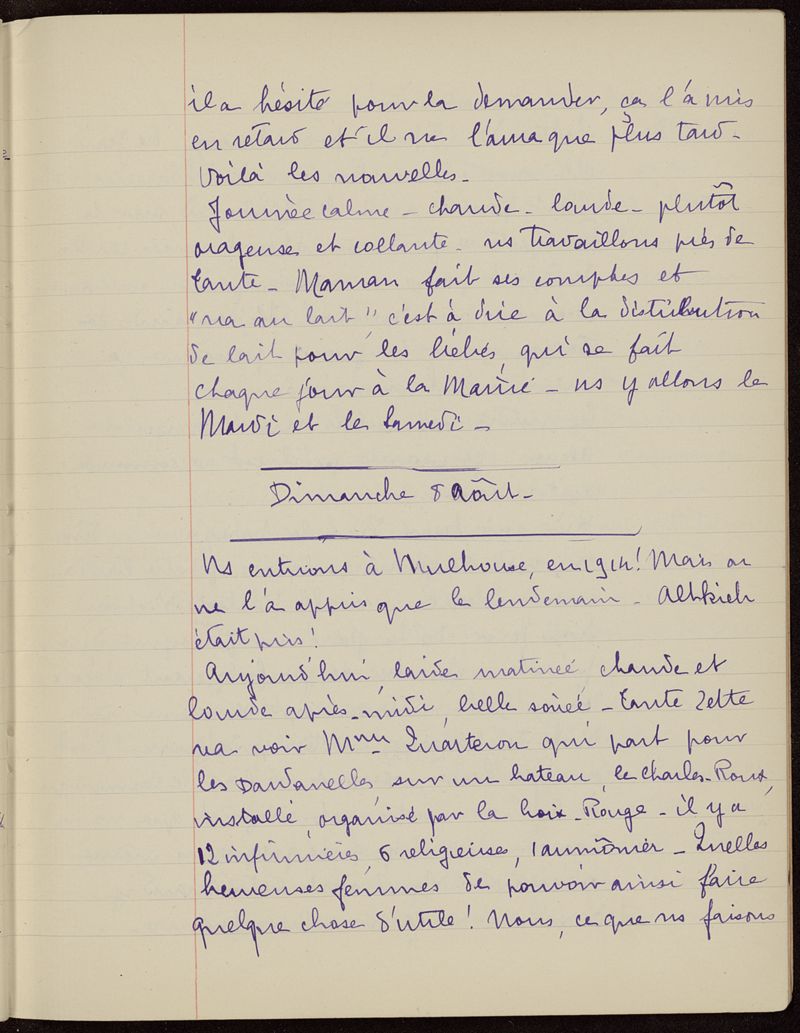 il a hésité pour la demander, ça l'a mis
en retard et il ne l'aura que plus tard -
Voilà les nouvelles -
Journée calme - chaude - lourde - plutôt
orageuse et collante - ns travaillons près de
tante - Maman fait ses comptes et
"va au lait", c'est à dire à la distribution
de lait pour les bébés, qui se fait
chaque jour à la Mairie - ns y allons le
Mardi et le Samedi -
Dimanche 8 Août -
Ns entrions à Mulhouse, en 1914! Mais on
ne l'a appris que le lendemain - Altkirch
était pris!
Aujourd'hui, laide matinée chaude et
lourde après-midi, belle soirée - Tante Zette
va voir Mme Quarteron qui part pour
les Dardanelles sur un bateau, le Charles-Roux,
installé, organisé par la Croix-Rouge - il y a
12 infirmières, 6 religieuses, 1 aumônier - Quelles
heureuses femmes de pouvoir ainsi faire
quelque chose d'utile! Nous, ce que ns faisons